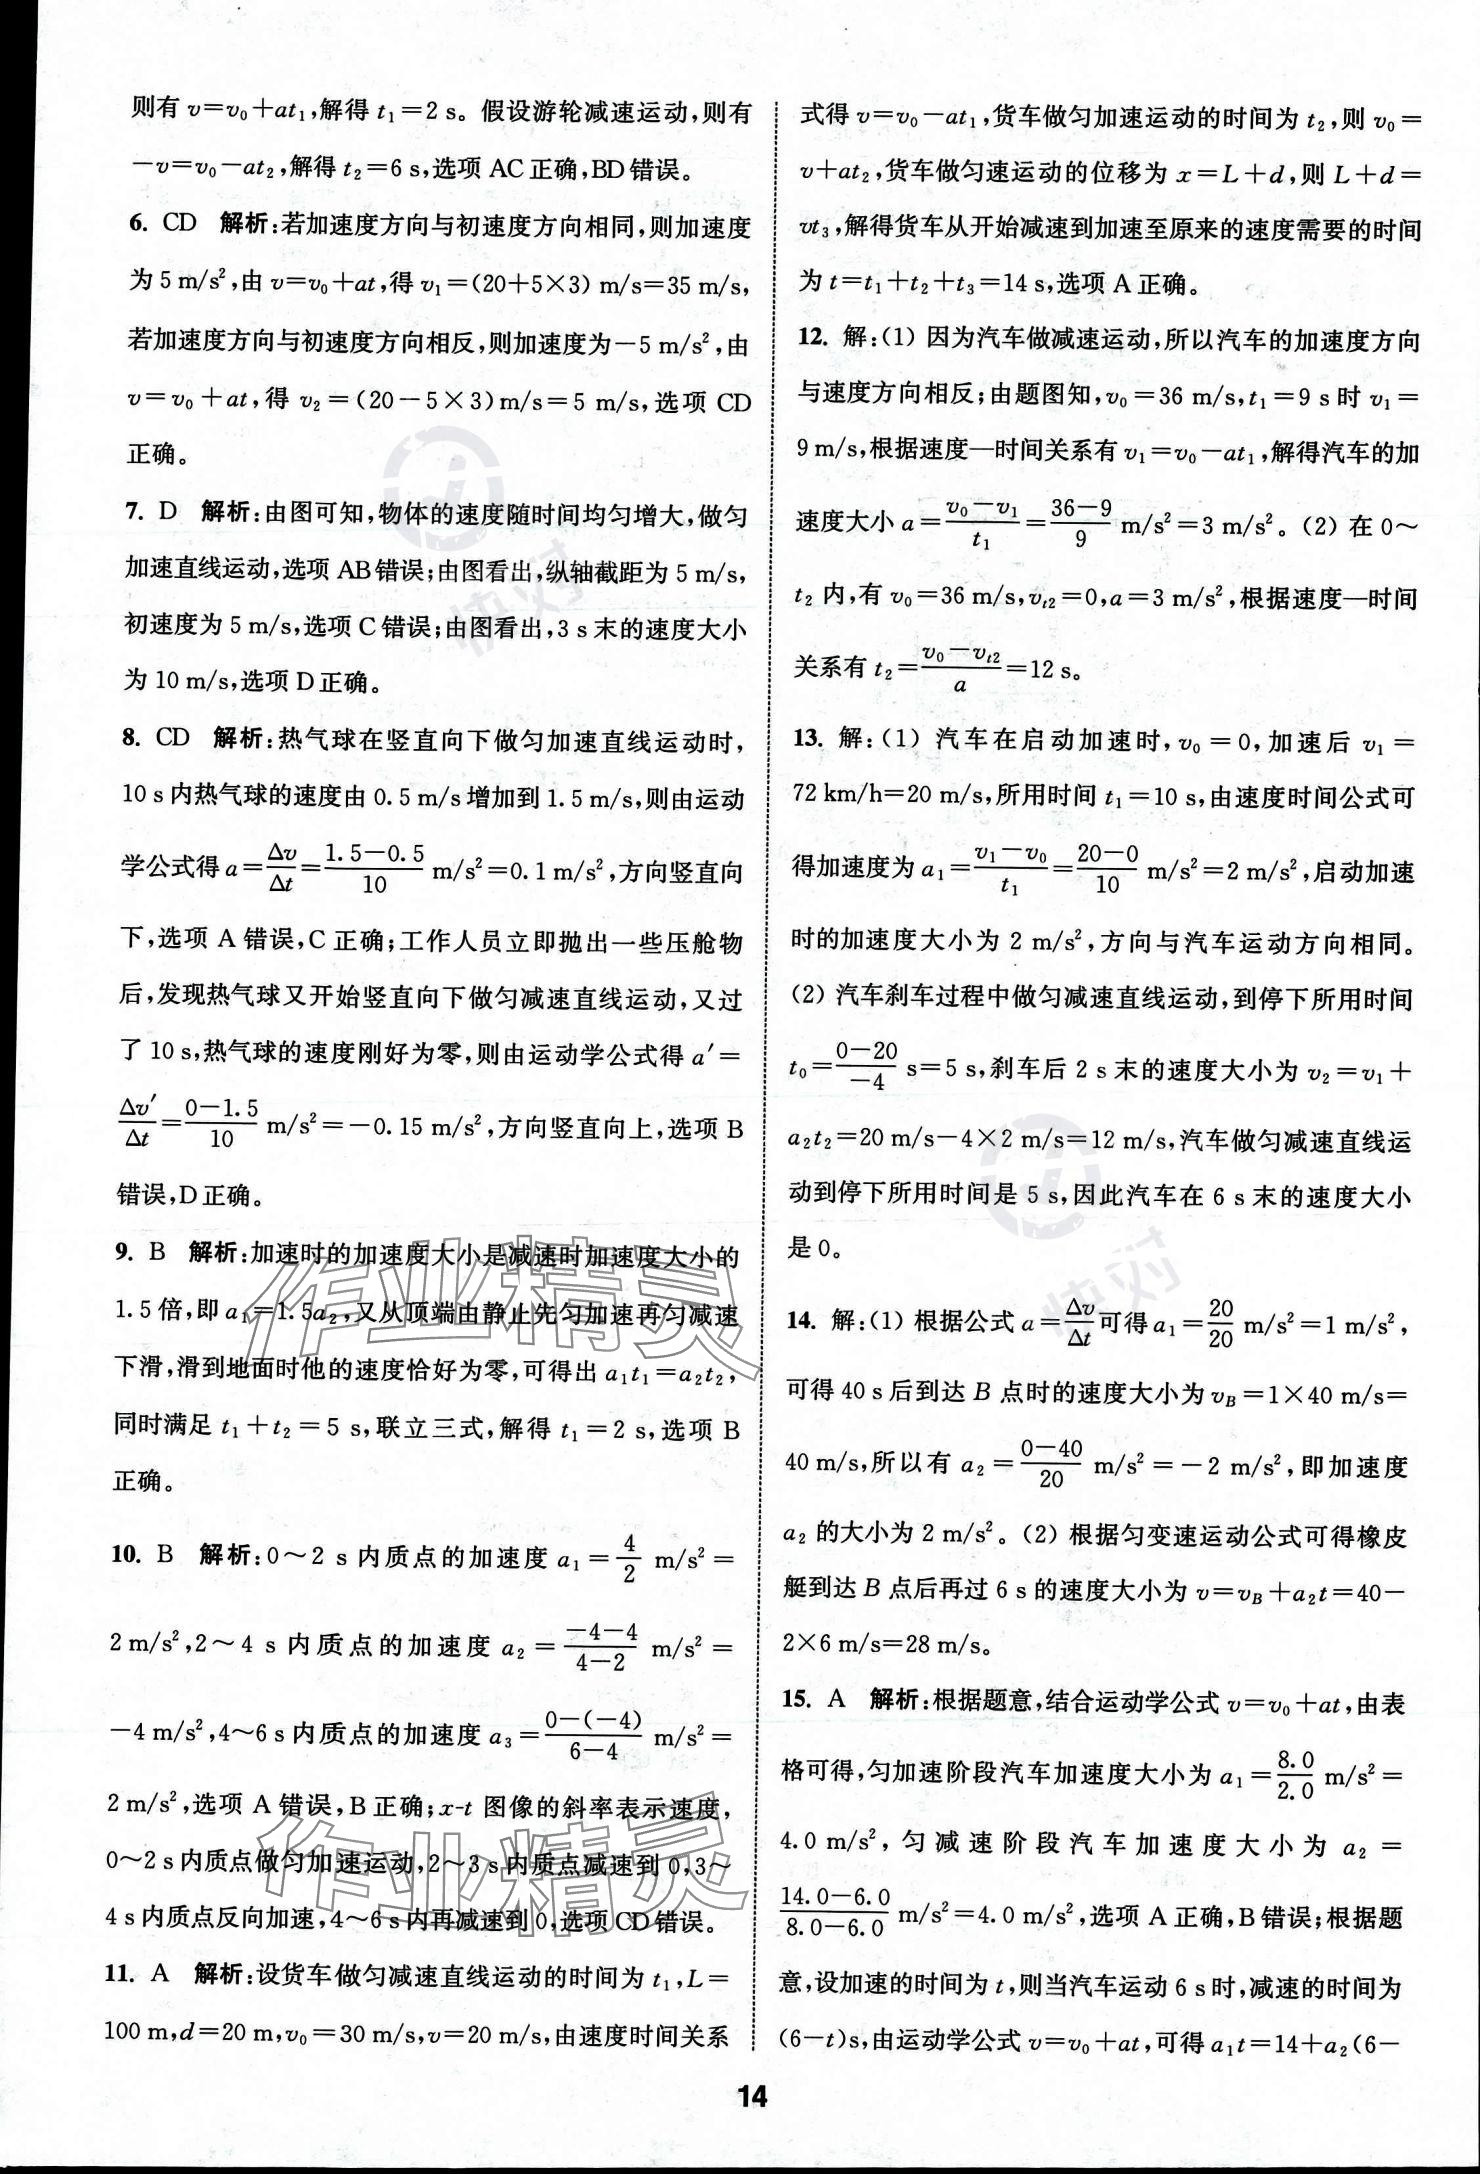 则有 v=v₀+at₁,解得 t₁=2 s。假设游轮减速运动,则有
-v=v₀-at₂,解得 t₂=6 s,选项 AC 正确,BD 错误。
6. CD 解析:若加速度方向与初速度方向相同,则加速度
为 5 m/s²,由 v=v₀+at,得 v₁=(20+5×3) m/s=35 m/s,
若加速度方向与初速度方向相反,则加速度为-5 m/s²,由
v=v₀+at,得 v₂=(20-5×3)m/s=5 m/s,选项 CD
正确。
7. D 解析:由图可知,物体的速度随时间均匀增大,做匀
加速直线运动,选项 AB 错误;由图看出,纵轴截距为 5 m/s,
初速度为 5 m/s,选项 C 错误;由图看出,3 s 末的速度大小
为 10 m/s,选项 D 正确。
8. CD 解析:热气球在竖直向下做匀加速直线运动时,
10 s 内热气球的速度由 0.5 m/s 增加到 1.5 m/s,则由运动
学公式得 a=Δv/Δt=(1.5-0.5)/10 m/s²=0.1 m/s²,方向竖直向
下,选项 A 错误,C 正确;工作人员立即抛出一些压舱物
后,发现热气球又开始竖直向下做匀减速直线运动,又过
了 10 s,热气球的速度刚好为零,则由运动学公式得 a′=
Δv′/Δt=(0-1.5)/10 m/s²=-0.15 m/s²,方向竖直向上,选项 B
错误,D 正确。
9. B 解析:加速时的加速度大小是减速时加速度大小的
1.5 倍,即 a₁=1.5a₂,又从顶端由静止先匀加速再匀减速
下滑,滑到地面时他的速度恰好为零,可得出 a₁t₁=a₂t₂,
同时满足 t₁+t₂=5 s,联立三式,解得 t₁=2 s,选项 B
正确。
10. B 解析:0～2 s 内质点的加速度 a₁=4/2 m/s²=
2 m/s²,2～4 s 内质点的加速度 a₂=(-4-4)/(4-2) m/s²=
-4 m/s²,4～6 s 内质点的加速度 a₃=(0-(-4))/(6-4) m/s²=
2 m/s²,选项 A 错误,B 正确;x-t 图像的斜率表示速度,
0～2 s 内质点做匀加速运动,2～3 s 内质点减速到 0,3～
4 s 内质点反向加速,4～6 s 内再减速到 0,选项 CD 错误。
11. A 解析:设货车做匀减速直线运动的时间为 t₁,L=
100 m,d=20 m,v₀=30 m/s,v=20 m/s,由速度时间关系
式得 v=v₀-at₁,货车做匀加速运动的时间为 t₂,则 v₀=
v+at₂,货车做匀速运动的位移为 x=L+d,则 L+d=
vt₃,解得货车从开始减速到加速至原来的速度需要的时间
为 t=t₁+t₂+t₃=14 s,选项 A 正确。
12. 解:(1) 因为汽车做减速运动,所以汽车的加速度方向
与速度方向相反;由题图知,v₀=36 m/s,t₁=9 s 时 v₁=
9 m/s,根据速度—时间关系有 v₁=v₀-at₁,解得汽车的加
速度大小 a=(v₀-v₁)/t₁=(36-9)/9 m/s²=3 m/s²。(2) 在 0～
t₂ 内,有 v₀=36 m/s,vₜ₂=0,a=3 m/s²,根据速度—时间
关系有 t₂=(v₀-vₜ₂)/a=12 s。
13. 解:(1) 汽车在启动加速时,v₀=0,加速后 v₁=
72 km/h=20 m/s,所用时间 t₁=10 s,由速度时间公式可
得加速度为 a₁=(v₁-v₀)/t₁=(20-0)/10 m/s²=2 m/s²,启动加速
时的加速度大小为 2 m/s²,方向与汽车运动方向相同。
(2) 汽车刹车过程中做匀减速直线运动,到停下所用时间
t₀=(0-20)/-4 s=5 s,刹车后 2 s 末的速度大小为 v₂=v₁+
a₂t₂=20 m/s-4×2 m/s=12 m/s,汽车做匀减速直线运
动到停下所用时间是 5 s,因此汽车在 6 s 末的速度大小
是 0。
14. 解:(1) 根据公式 a=Δv/Δt可得 a₁=20/20 m/s²=1 m/s²,
可得 40 s 后到达 B 点时的速度大小为 v_B=1×40 m/s=
40 m/s,所以有 a₂=(0-40)/20 m/s²=-2 m/s²,即加速度
a₂ 的大小为 2 m/s²。(2) 根据匀变速运动公式可得橡皮
艇到达 B 点后再过 6 s 的速度大小为 v=v_B+a₂t=40-
2×6 m/s=28 m/s。
15. A 解析:根据题意,结合运动学公式 v=v₀+at,由表
格可得,匀加速阶段汽车加速度大小为 a₁=8.0/2.0 m/s²=
4.0 m/s²,匀减速阶段汽车加速度大小为 a₂=
(14.0-6.0)/(8.0-6.0) m/s²=4.0 m/s²,选项 A 正确,B 错误;根据题
意,设加速的时间为 t,则当汽车运动 6 s 时,减速的时间为
(6-t)s,由运动学公式 v=v₀+at,可得 a₁t=14+a₂(6-
14
快对
快对
作业精灵
作业精灵